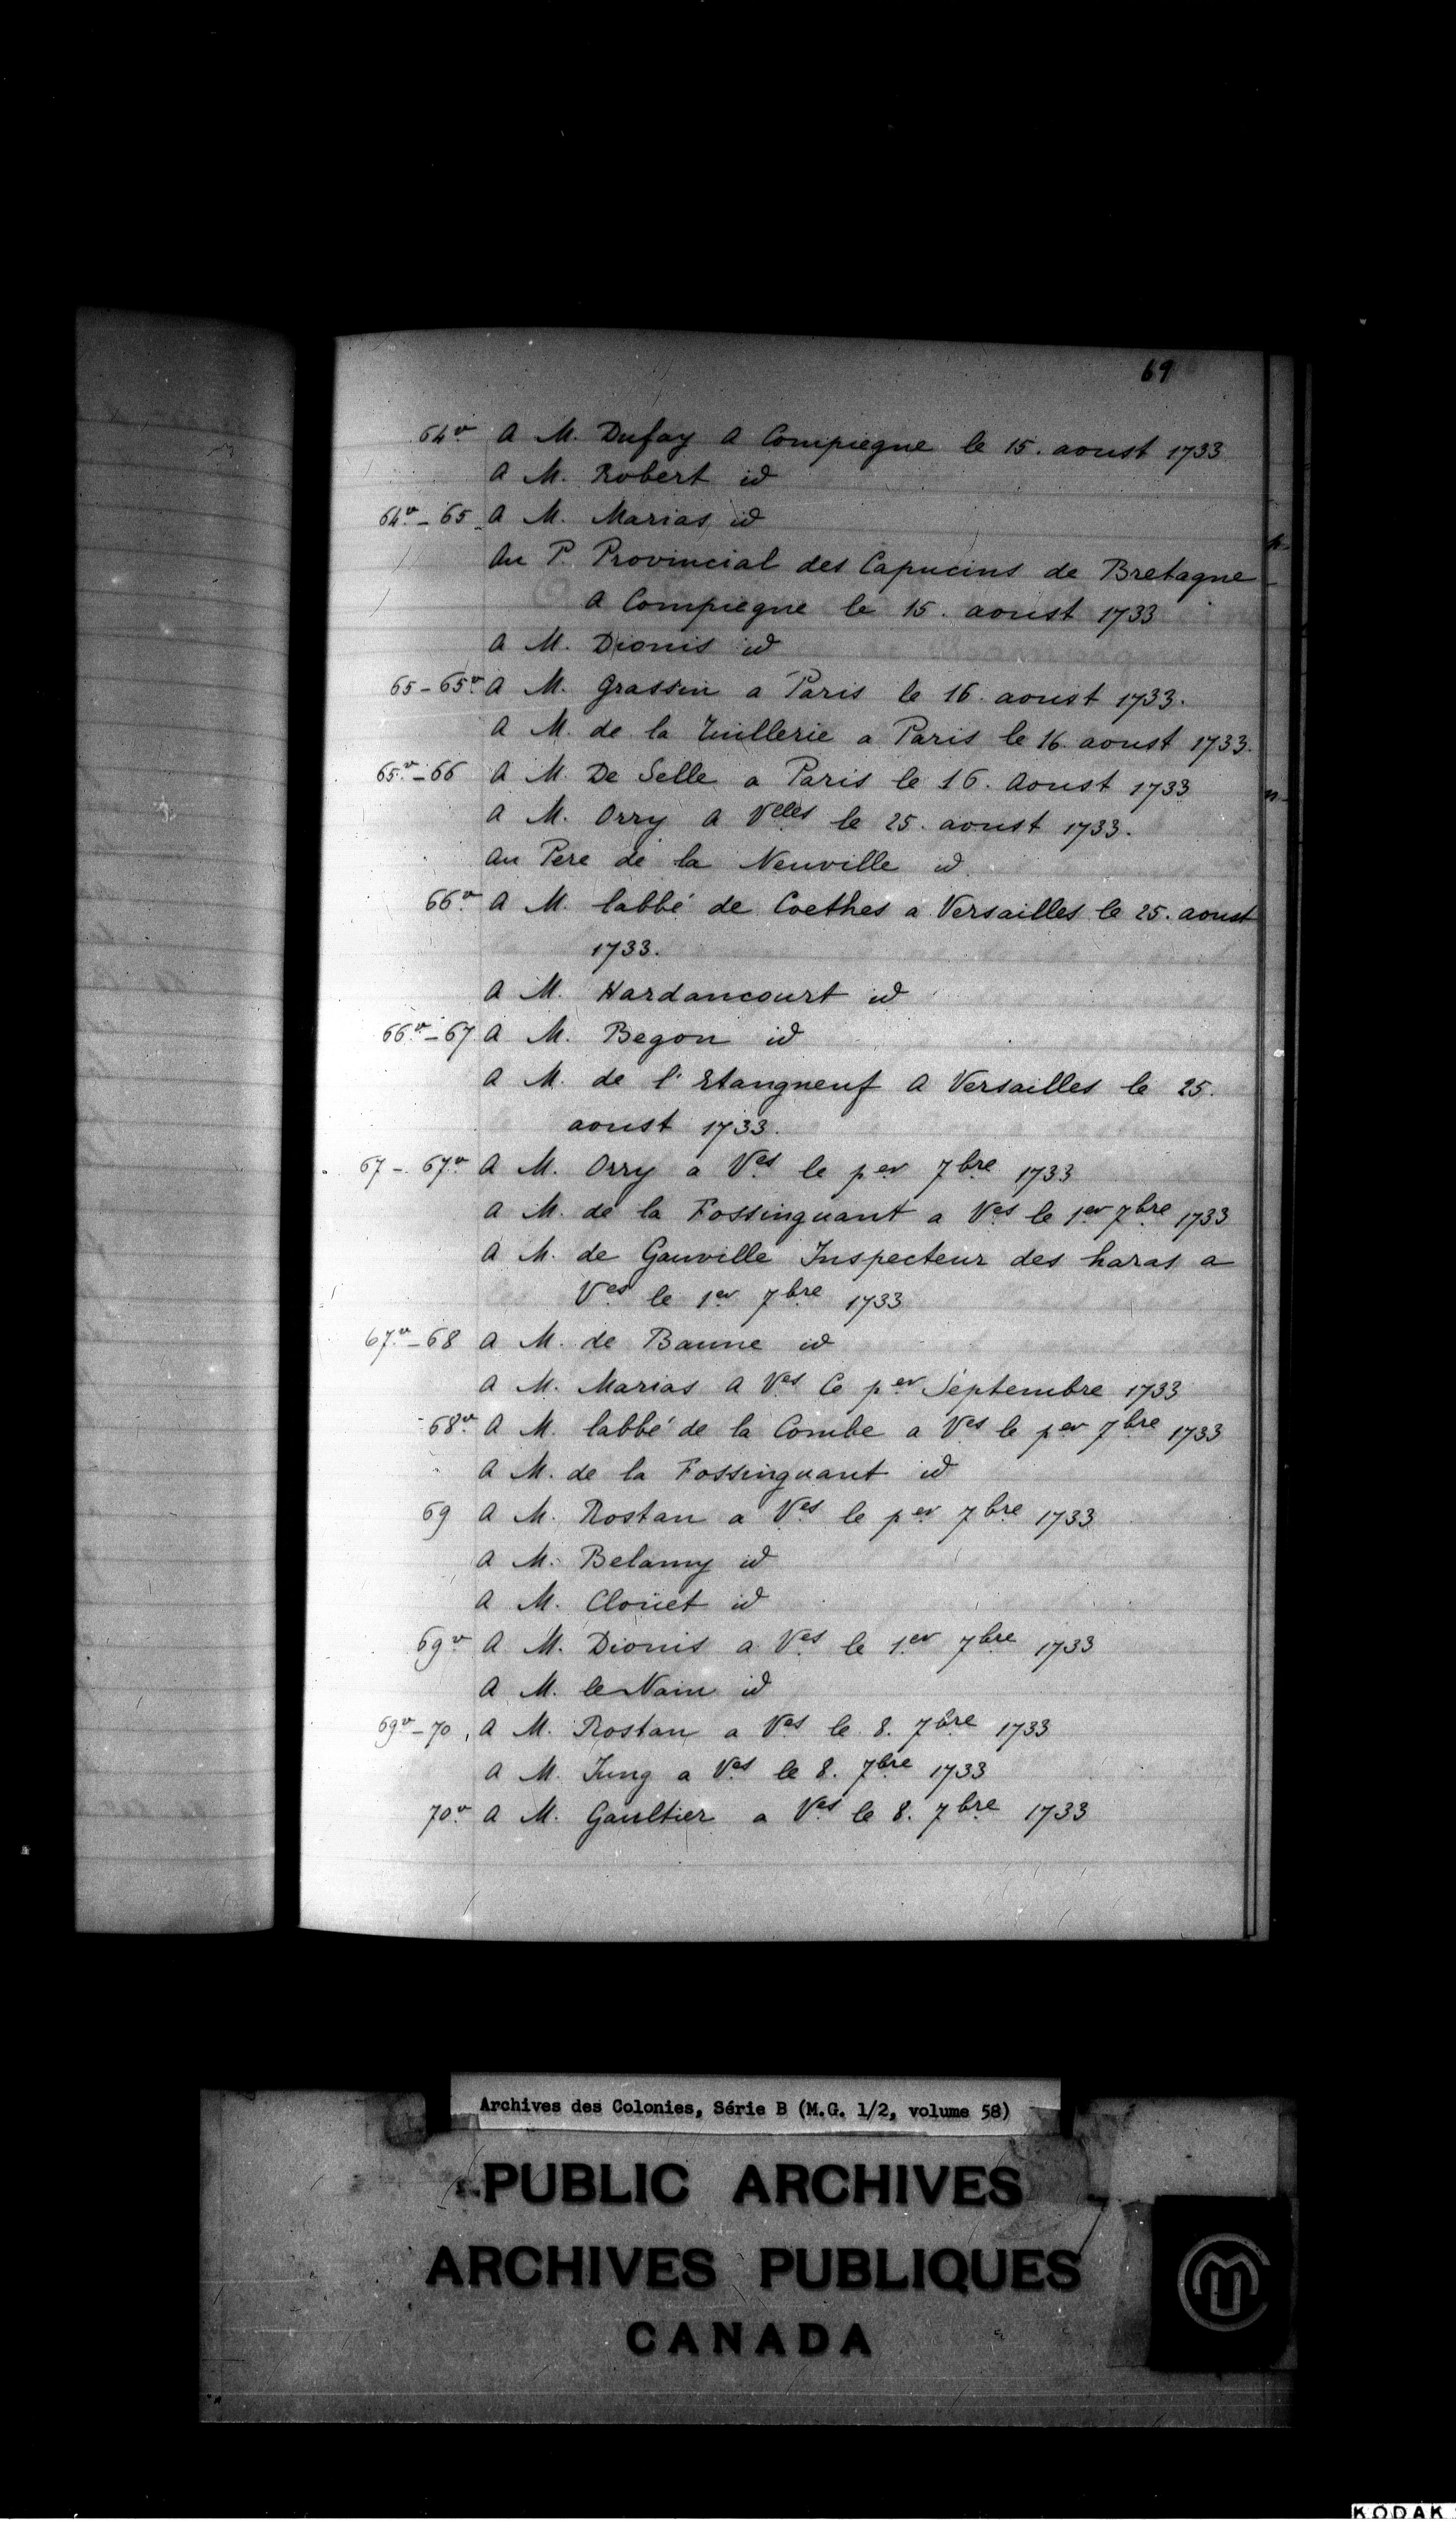 69
64v. A M. Dufay a Compiegne le 15. aoust 1733
A M. Robert id
64v. - 65 A M. Marias id
Au P. Provincial des Capucins de Bretagne
a Compiegne le 15. aoust 1733
A M. Dionis id
65 - 65v. A M. Grassin a Paris le 16. aoust 1733.
A M. de la Tuillerie a Paris le 16. aoust 1733.
65v. - 66 A M. De Selle a Paris le 16. Aoust 1733
A M. Orry A Velles le 25. aoust 1733.
Au Pere de la Neuville id.
66v. A M. labbé de Coethes a Versailles le 25. aoust
1733.
A M. Hardancourt id
66v. - 67 A M. Begon id
A M. de l'Etangneuf A Versailles le 25.
aoust 1733.
67 - 67v. A M. Orry a Ves le per 7bre 1733
A M. de la Fossinguant a Ves le 1er 7bre 1733
A M. de Gauville Inspecteur des haras a
Ves le 1er 7bre 1733
67v. - 68 A M. de Baune id
A M. Marias A Ves le per Septembre 1733
68v. A M. labbé de la Combe a Ves le per 7bre 1733
A M. de la Fossinguant id
69 A M. Rostan a Ves le per 7bre 1733
A M. Belamy id
A M. Cloüet id
69v. A M. Dionis a Ves le 1er 7bre 1733
A M. le Nain id
69v. - 70 A M. Rostan a Ves le 8. 7bre 1733
A M. Jung a Ves le 8. 7bre 1733
70v. A M. Gaultier a Ves le 8. 7bre 1733
Archives des Colonies, Série B (M.G. 1/2, volume 58)
PUBLIC ARCHIVES
ARCHIVES PUBLIQUES
CANADA
KODAK